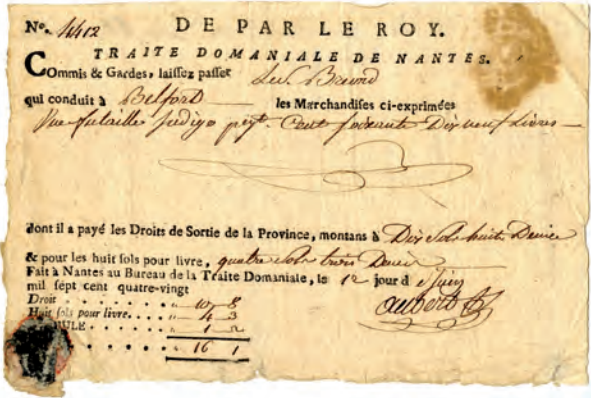 No. 4412 DE PAR LE ROY.
TRAITE DOMANIALE DE NANTES.
COmmis & Gardes, laissez passer
qui conduit à Belfort les Marchandises ci-exprimées
Une futaille indigo pest. Cent soixante Dix neuf Livres
dont il a payé les Droits de Sortie de la Province, montans à Dix sols huit Denier
& pour les huit sols pour livre, quatre sols trois Denier
Fait à Nantes au Bureau de la Traite Domaniale, le 12 jour d Juin
mil sept cent quatre-vingt
Droit 10 8
Huit sols pour livre 4 3
BULE 1 2
16 1